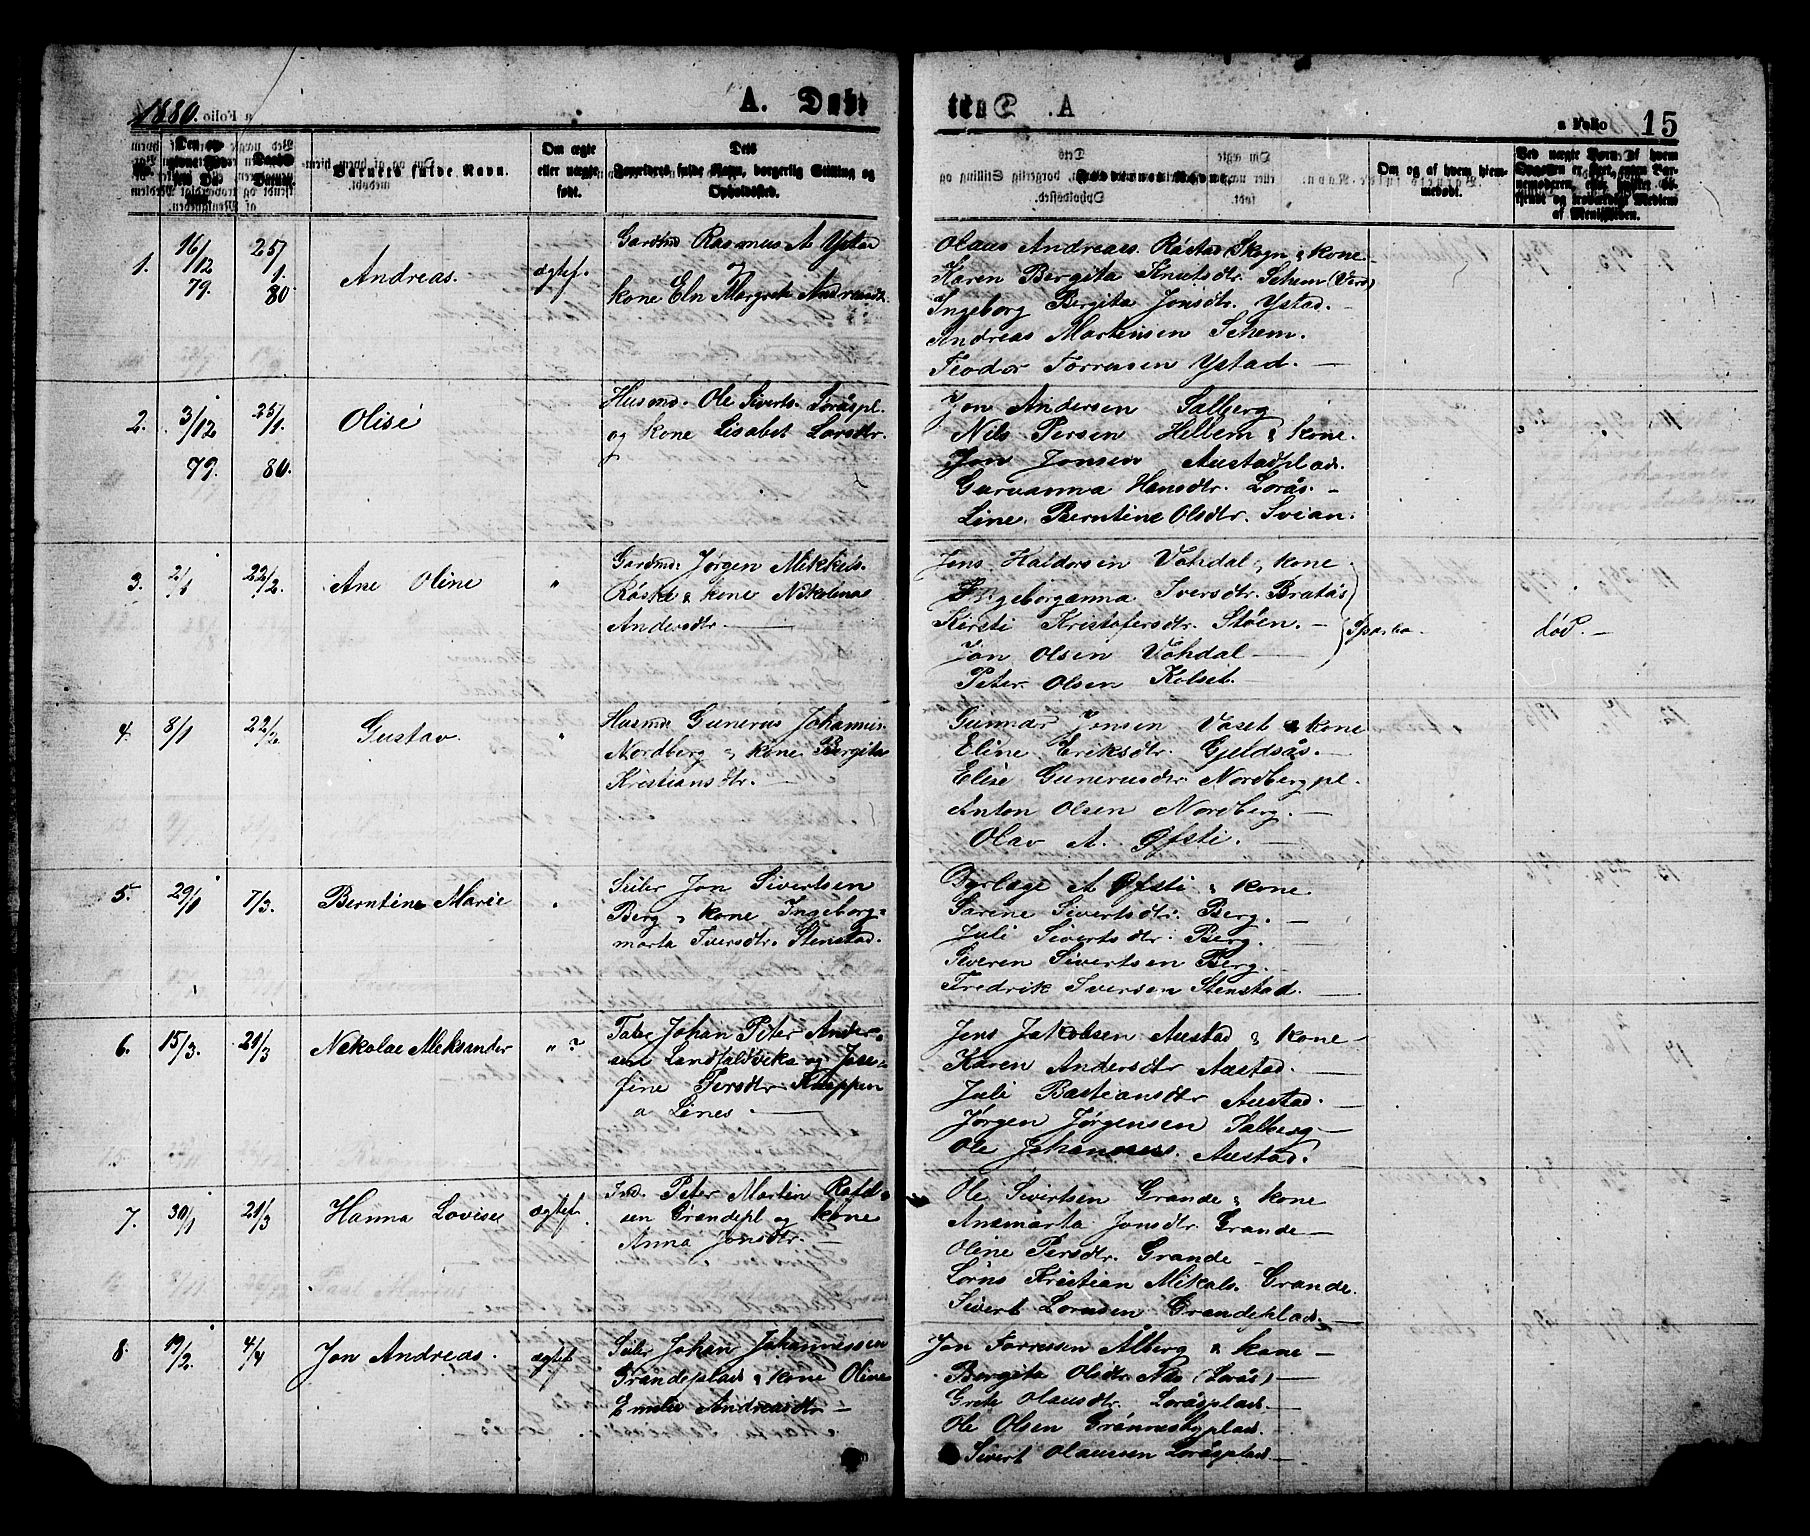 1880.
A. Døbte
a Folio 15
No.
Barnets fulde Navn.
Om ægte
eller uægte
født.
Dets
Forældres fulde Navn, borgerlig Stilling og
Opholdssted.
Faddernes Navne.
Om og af hvem hjem-
medøbt.
1.
16/12
79.
25/1.
80.
Andreas.
ægtef.
Gardmd Rasmus A Ystad
kone Eln Margrete Andreasdt.
Olaus Andreaes. Røstad Skogn & kone
Karen Bergita Knutsdtr. Sehem (Verd)
Ingeborg Bergita Jonsdtr. Ystad.
Andreas Martensen Sehem.
Teodor Torresen Ystad. —
2.
3/12
79.
25/1.
80.
Olise
Husmd. Ole Siverts. Loråspl.
og kone Lisabet Larsdtr.
Jon Andersen Salberg
Nils Persen Hellem & kone.
Jon Jonsen Austadplads.
Gurvanna Hansdtr. Lorås. -
Line Berntine Olsdtr. Svian.
3.
2/1
22/2.
Ane Oline
"
Gardmd. Jørgen Mikkels.
Røske & kone Nikolina
Andersdtr. —
Jens Haldorsen Vohdal & kone
Ingeborganna Iversdtr. Bratås
Kirsti Kristofersdtr. Støen. -
Jon Olsen Vohdal —
Peter Olsen Kolset. -
Sparbo.
død. —
4.
8/1
22/2
Gustav.
"
Husmd Gunerus Johannes.
Nordberg & kone Bergita
Kristiansdtr. —
Gunnar Jonsen Vaset & kone
Eline Eriksdtr. Gjeldsås. —
Elise Gunerusdtr Nordbergpl.
Anton Olsen Nordberg. —
Olav A. Øfsti. —
5.
29/1
7/3.
Berntine Marie
"
Seiler Jon Sivertsen
Berg & kone Ingeborg-
marta Iversdtr. Stenstad.
A Øfsti & kone.
Sarine Sivertsdtr. Berg. —
Juli Sivertsdtr. Berg. —
Severen Sivertsen Berg. —
Fredrik Iversen Stenstad. —
6.
15/3.
21/3
Nikolae Aleksander
" ?
Johan Peter Ander-
sen Landfaldvika og Jose-
fine Persdtr. Kneppen
a Lines. —
Jens Jakobsen Austad & kone —
Karen Andersdtr Austad. —
Juli Bastiansdtr Austad. —
Jørgen Jørgensen Salberg —
Ole Johannesen. Austad. —
7.
30/1
21/3
Hanna Lovise
ægtef.
Ind. Peter Martin Rafael-
sen Grandepl og kone
Anna Jonsdtr. —
Ole Sivertsen Grande & kone
Anemarta Jonsdtr. Grande —
Oline Persdtr. Grande —
Lorns Kristian Mikals. Grande.
Sivert Lornsen Grandeplads. —
8.
19/2.
4/4
Jon Andreas.
ægtef.
Seiler Johan Johannessen
Grandeplads & kone Oline
Emelie Andreasdtr —
Jon Torresen Ålberg & kone —
Bergita Olsdtr. Næs (Lorås) —
Grete Olausdtr. Loråsplads. —
Ole Olsen Grønnesbyplads.
Sivert Olaussen Loråsplads —